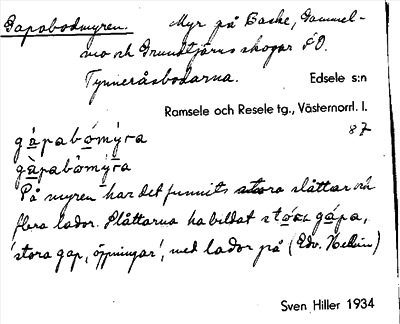 Gapabodmyren. Myr på Backe, Gammel-
mo och Grundtjärns skogar SO.
Tynneråsbodarna. Edsele s:n
Ramsele och Resele tg., Västernorrl. l.
87
gápabómýra
gàpabòmýra
På myren har det funnits stora slåttar och
flera lador. Slåttarna ha bildat stora gápa,
'stora gap, öppningar', med lador på (Edv. Hellin)
Sven Hiller 1934